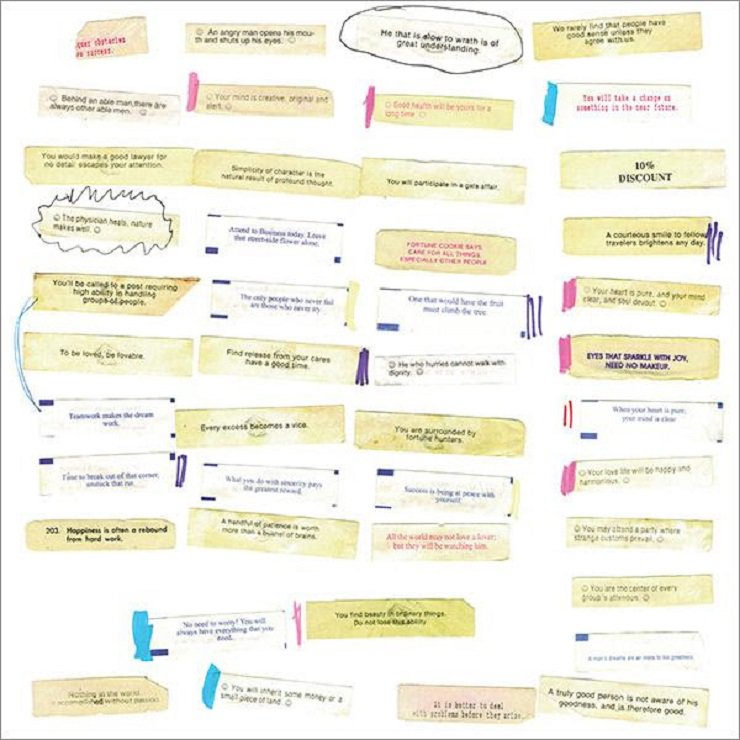 quer obstacles
on success.
☺ An angry man opens his mou-
th and shuts up his eyes. ☺
He that is slow to wrath is of
great understanding.
We rarely find that people have
good sense unless they
agree with us.
☺ Behind an able man,there are
always other able men. ☺
☺ Your mind is creative, original and
alert. ☺
☺ Good health will be yours for a
long time. ☺
You will take a chance on
something in the near future.
You would make a good lawyer for
no detail escapes your attention.
Simplicity of character is the
natural result of profound thought.
You will participate in a gala affair.
10%
DISCOUNT
☺ The physician heals, nature
makes well. ☺
Attend to Business today. Leave
that street-side flower alone.
FORTUNE COOKIE SAYS:
CARE FOR ALL THINGS.
ESPECIALLY OTHER PEOPLE
A courteous smile to fellow
travelers brightens any day.
You'll be called to a post requiring
high ability in handling
groups of people.
The only people who never fail
are those who never try.
One that would have the fruit
must climb the tree.
☺ Your heart is pure, and your mind
clear, and soul devout. ☺
To be loved, be lovable.
Find release from your cares
have a good time.
☺ He who hurries cannot walk with
dignity. ☺
EYES THAT SPARKLE WITH JOY,
NEED NO MAKEUP.
Teamwork makes the dream
work.
Every excess becomes a vice.
You are surrounded by
fortune hunters.
When your heart is pure,
your mind is clear
Time to break out of that corner,
unstuck that rut.
What you do with sincerity pays
the greatest reward.
Success is being at peace with
yourself.
☺ Your love life will be happy and
harmonious. ☺
203. Happiness is often a rebound
from hard work.
A handful of patience is worth
more than a bushel of brains.
All the world may not love a lover;
but they will be watching him.
☺ You may attend a party where
strange customs prevail. ☺
☺ You are the center of every
group's attention. ☺
No need to worry! You will
always have everything that you
need.
You find beauty in ordinary things.
Do not lose this ability.
A man's dreams are an index to his greatness.
Nothing in the world
accomplished without passion.
☺ You will inherit some money or a
small piece of land. ☺
It is better to deal
with problems before they arise.
A truly good person is not aware of his
goodness, and is therefore good.